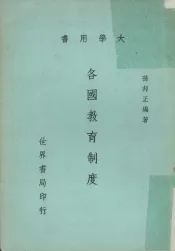 書用學大
孫邦正編著
各國教育制度
世界書局印行